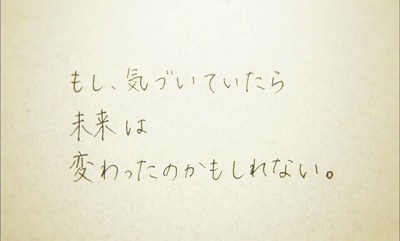 もし、気づいていたら
未来は
変わったのかもしれない。